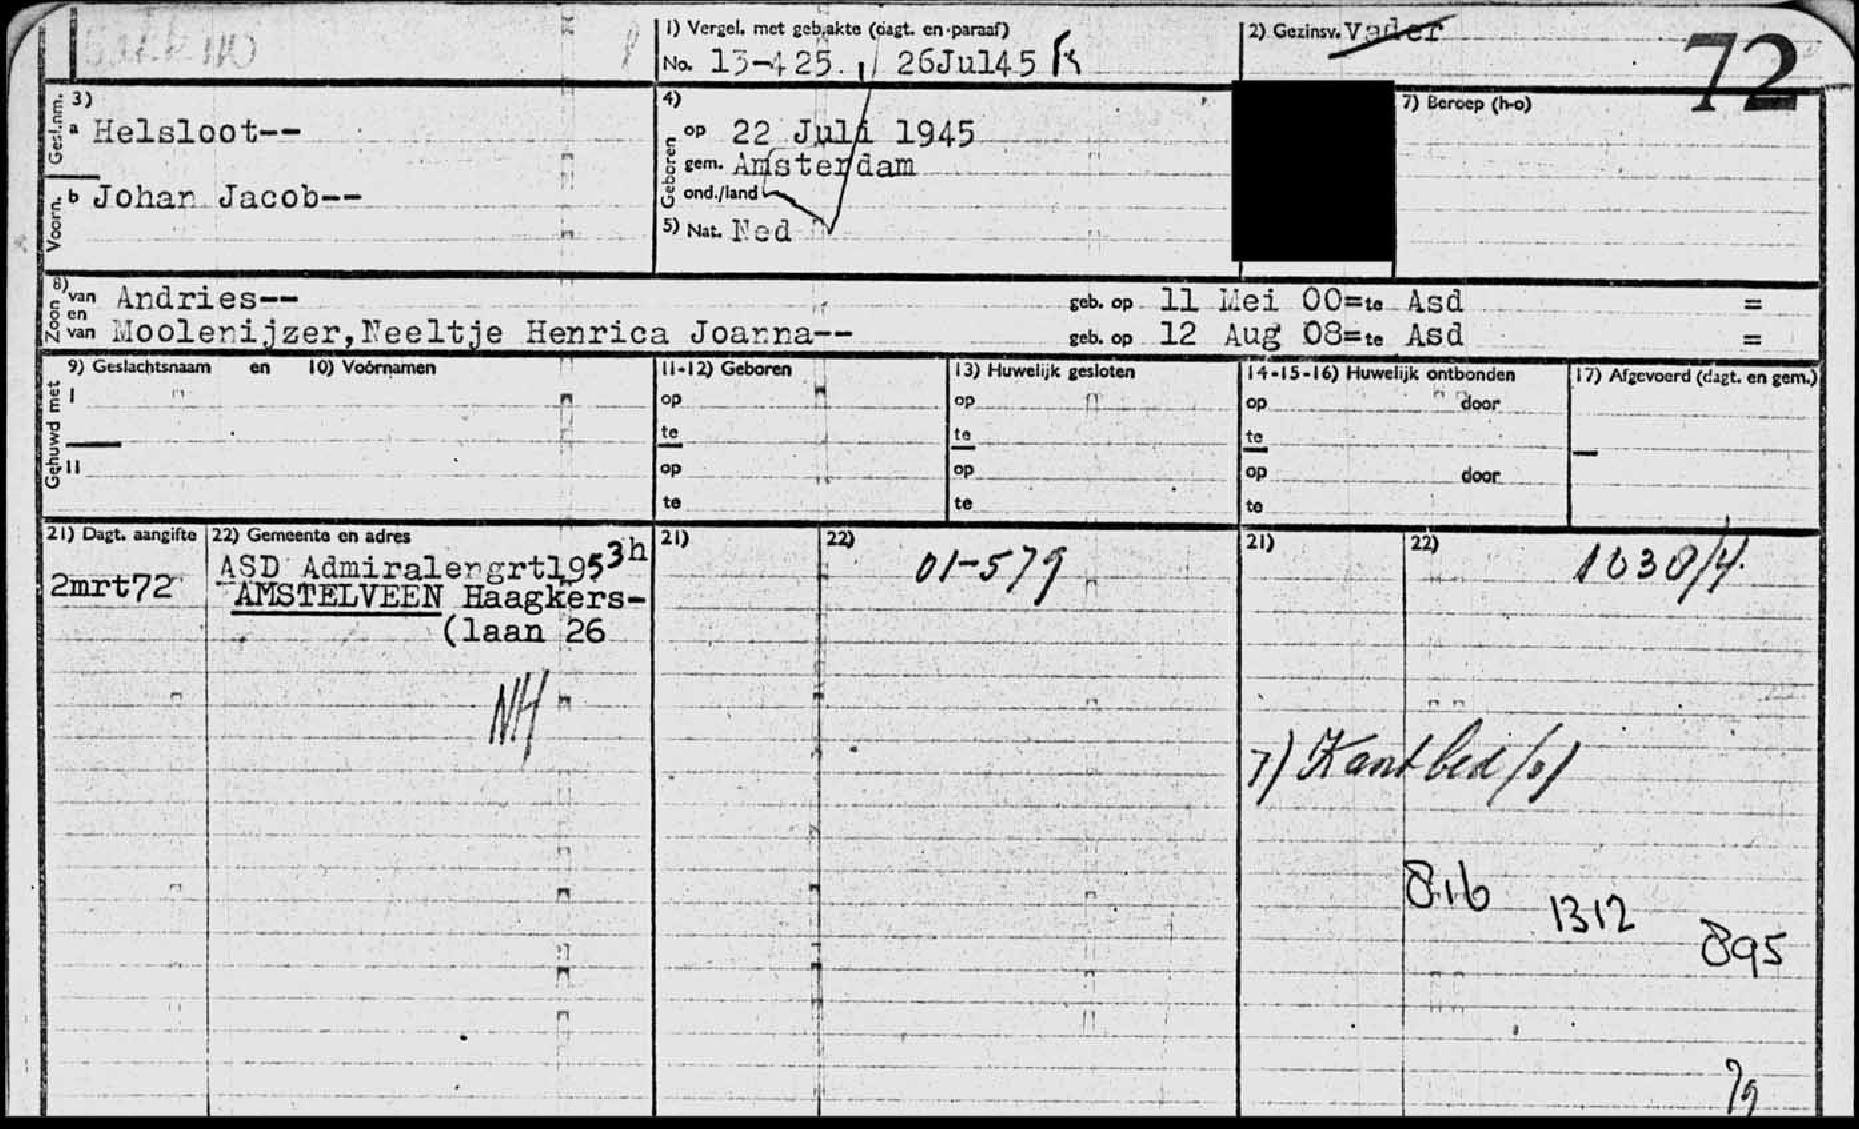 1) Vergel. met geb.akte (dagt. en paraaf)
No. 13-425. 26Jul45
2) Gezinsv. Vader
72
3)
Gesl.nm.
a Helsloot--
Voorn.
b Johan Jacob--
4)
Geboren
op 22 Juli 1945
gem. Amsterdam
ond./land
5) Nat. Ned
7) Beroep (h-o)
8)
Zoon
van Andries-- geb. op 11 Mei 00=te Asd =
en
van Moolenijzer,Neeltje Henrica Joanna-- geb. op 12 Aug 08=te Asd =
Gehuwd met
9) Geslachtsnaam en 10) Voornamen
I
II
11-12) Geboren
op
te
op
te
13) Huwelijk gesloten
op
te
op
te
14-15-16) Huwelijk ontbonden
op door
te
op door
te
17) Afgevoerd (dagt. en gem.)
21) Dagt. aangifte 22) Gemeente en adres
ASD Admiralengrt195 3h
2mrt72 AMSTELVEEN Haagkers-
(laan 26
NH
21) 22)
01-579
21) 22)
1030/4.
7) Kant bed/o/
816
1312
895
79